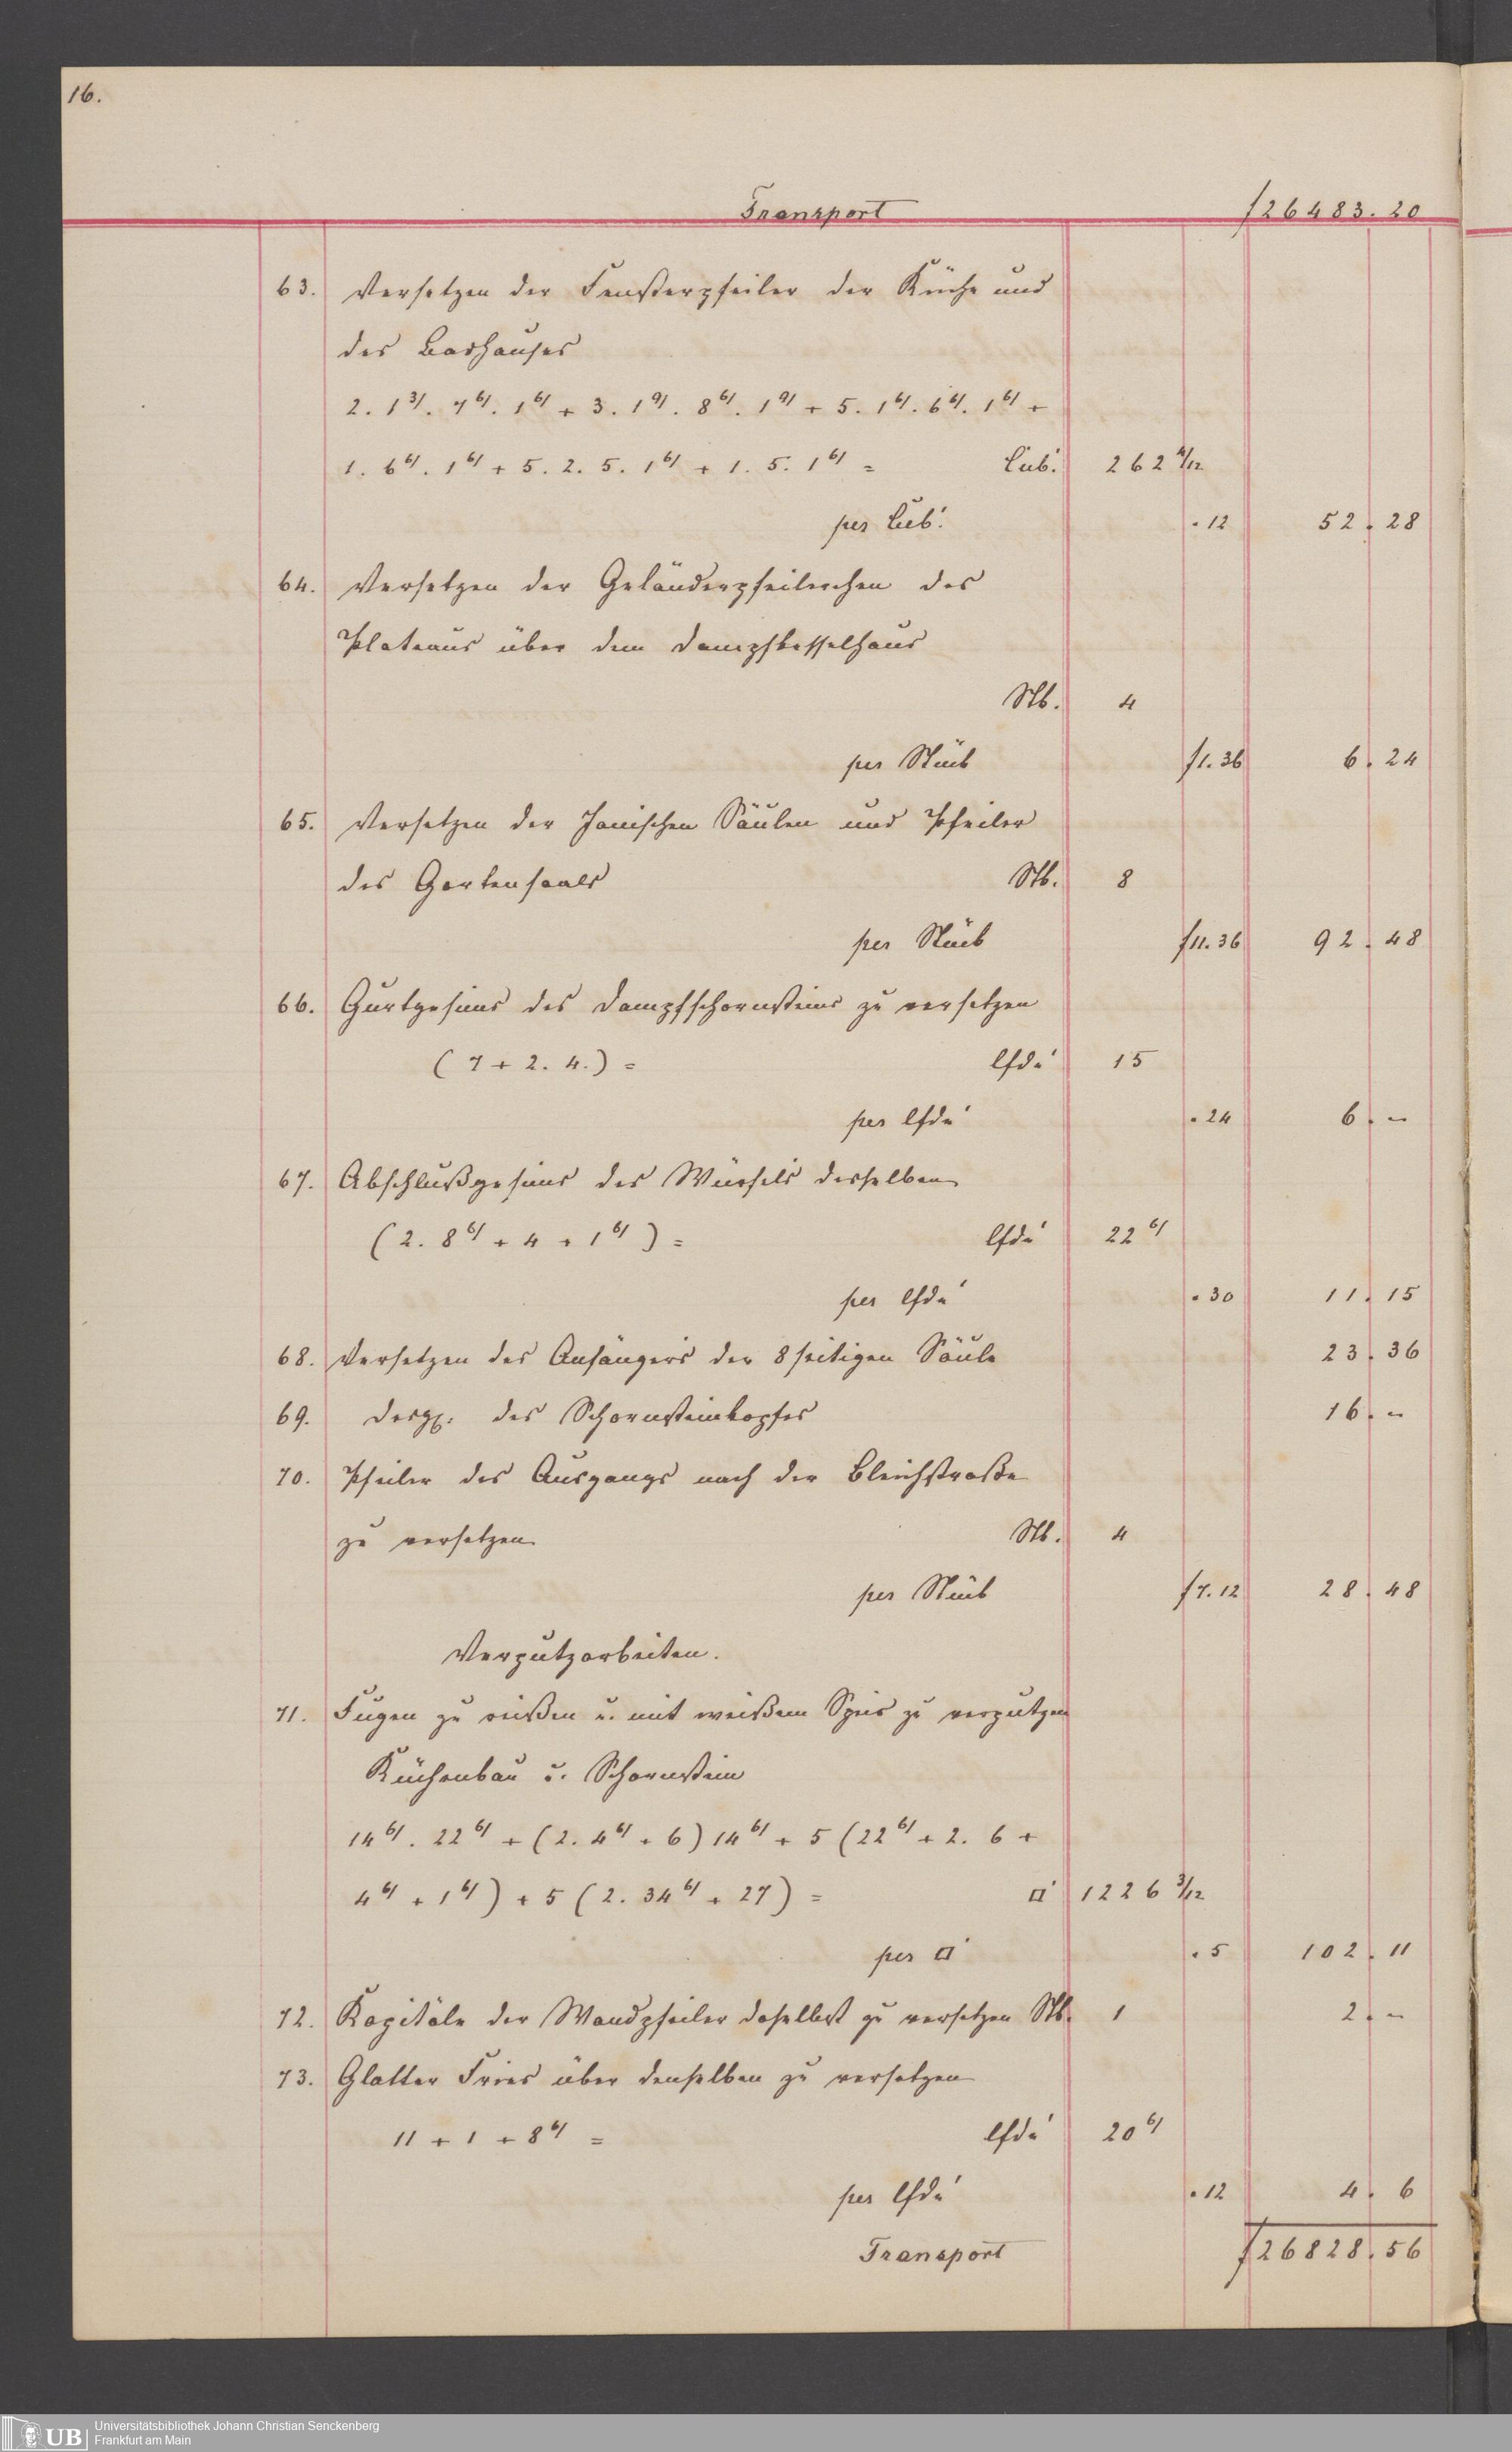 16.
Transport f 26483. 20
63. Versetzen der Fensterpfeiler der Küche und
des Badhauses
2. 1³ᐟ. 7⁶ᐟ. 1⁶ᐟ + 3. 1⁹ᐟ. 8⁶ᐟ. 1⁹ᐟ + 5. 1⁶ᐟ. 6⁶ᐟ. 1⁶ᐟ +
1. 6⁶ᐟ. 1⁶ᐟ + 5. 2. 5. 1⁶ᐟ + 1. 5. 1⁶ᐟ = Cub.' 262
per Cub.' . 12 52. 28
64. Versetzen der Geländerpfeilerchen des
Plateaus über dem Dampfkesselhaus
Stk. 4
per Stück f 1. 36 6. 24
65. Versetzen der Jonischen Säulen und Pfeiler
des Gartensaals Stk. 8
per Stück f 11. 36 92. 48
66. Gurtgesims des Dampfschornsteins zu versetzen
(7 + 2. 4.) = lfd.' 15
per lfd.' . 24 6. -
67. Abschlußgesims des Würfels desselben
(2. 8⁶ᐟ + 4 + 1⁶ᐟ) = lfd.' 22⁶ᐟ
per lfd.' . 30 11. 15
68. Versetzen des Anfängers der 8seitigen Säule 23. 36
69. desgl. des Schornsteinkopfes 16. -
70. Pfeiler des Ausgangs nach der Bleichstraße
zu versetzen Stk. 4
per Stück f 7. 12 28. 48
Verputzarbeiten.
71. Fugen zu reißen u. mit weißem Speis zu verputzen
Küchenbau u. Schornstein
14⁶ᐟ. 22⁶ᐟ + (2. 4⁶ᐟ + 6) 14⁶ᐟ + 5 (22⁶ᐟ + 2. 6 +
4⁶ᐟ + 1⁶ᐟ) + 5 (2. 34⁶ᐟ + 27) = □' 1226 3/12
per □' . 5 102. 11
72. Kapitäle der Wandpfeiler daselbst zu versetzen Stk. 1 2. -
73. Glatter Fries über denselben zu versetzen
11 + 1 + 8⁶ᐟ = lfd.' 20⁶ᐟ
per lfd.' . 12 4. 6
Transport f 26828. 56
UB
Universitätsbibliothek Johann Christian Senckenberg
Frankfurt am Main